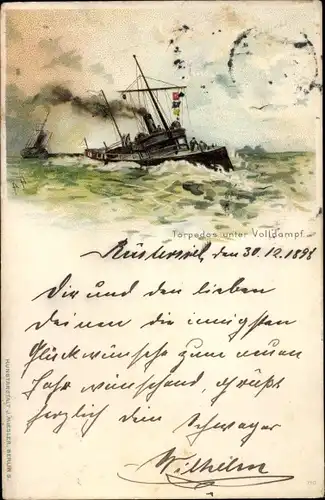 Torpedos unter Volldampf.
Rüstersiel, den 30.12.1898
Dir und den lieben
Deinen die innigsten
Glückwünsche zum neuen
Jahr wünschend, grüßt
herzlich dein Schwager
Wilhelm
KUNSTANSTALT J. MIESLER, BERLIN S.